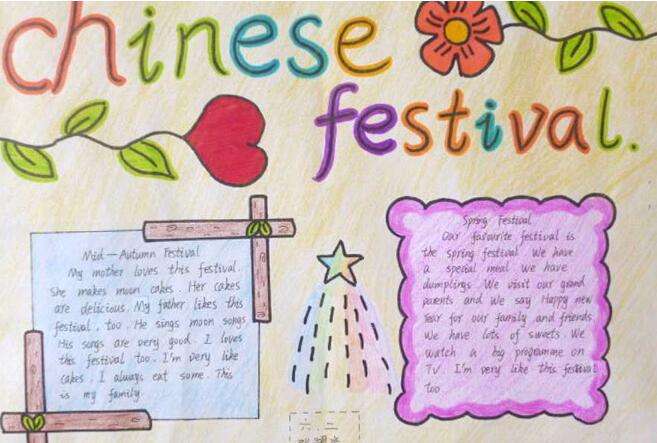 chinese
festival.
Mid—Autumn Festival
My mother loves this festival.
She makes moon cakes. Her cakes
are delicious. My father likes this
festival, too. He sings moon songs
His songs are very good. I loves
this festival too. I'm very like
cakes. I always eat some. This
is my family
Spring Festival
Our favourite festival is
the spring festival We have
a special meal we have
dumplings We visit our grand
parents and we say Happy new
Year for our family and friends
We have lots of sweets. We
watch a big programme on
TV. I'm very like this festival
too.
六 二